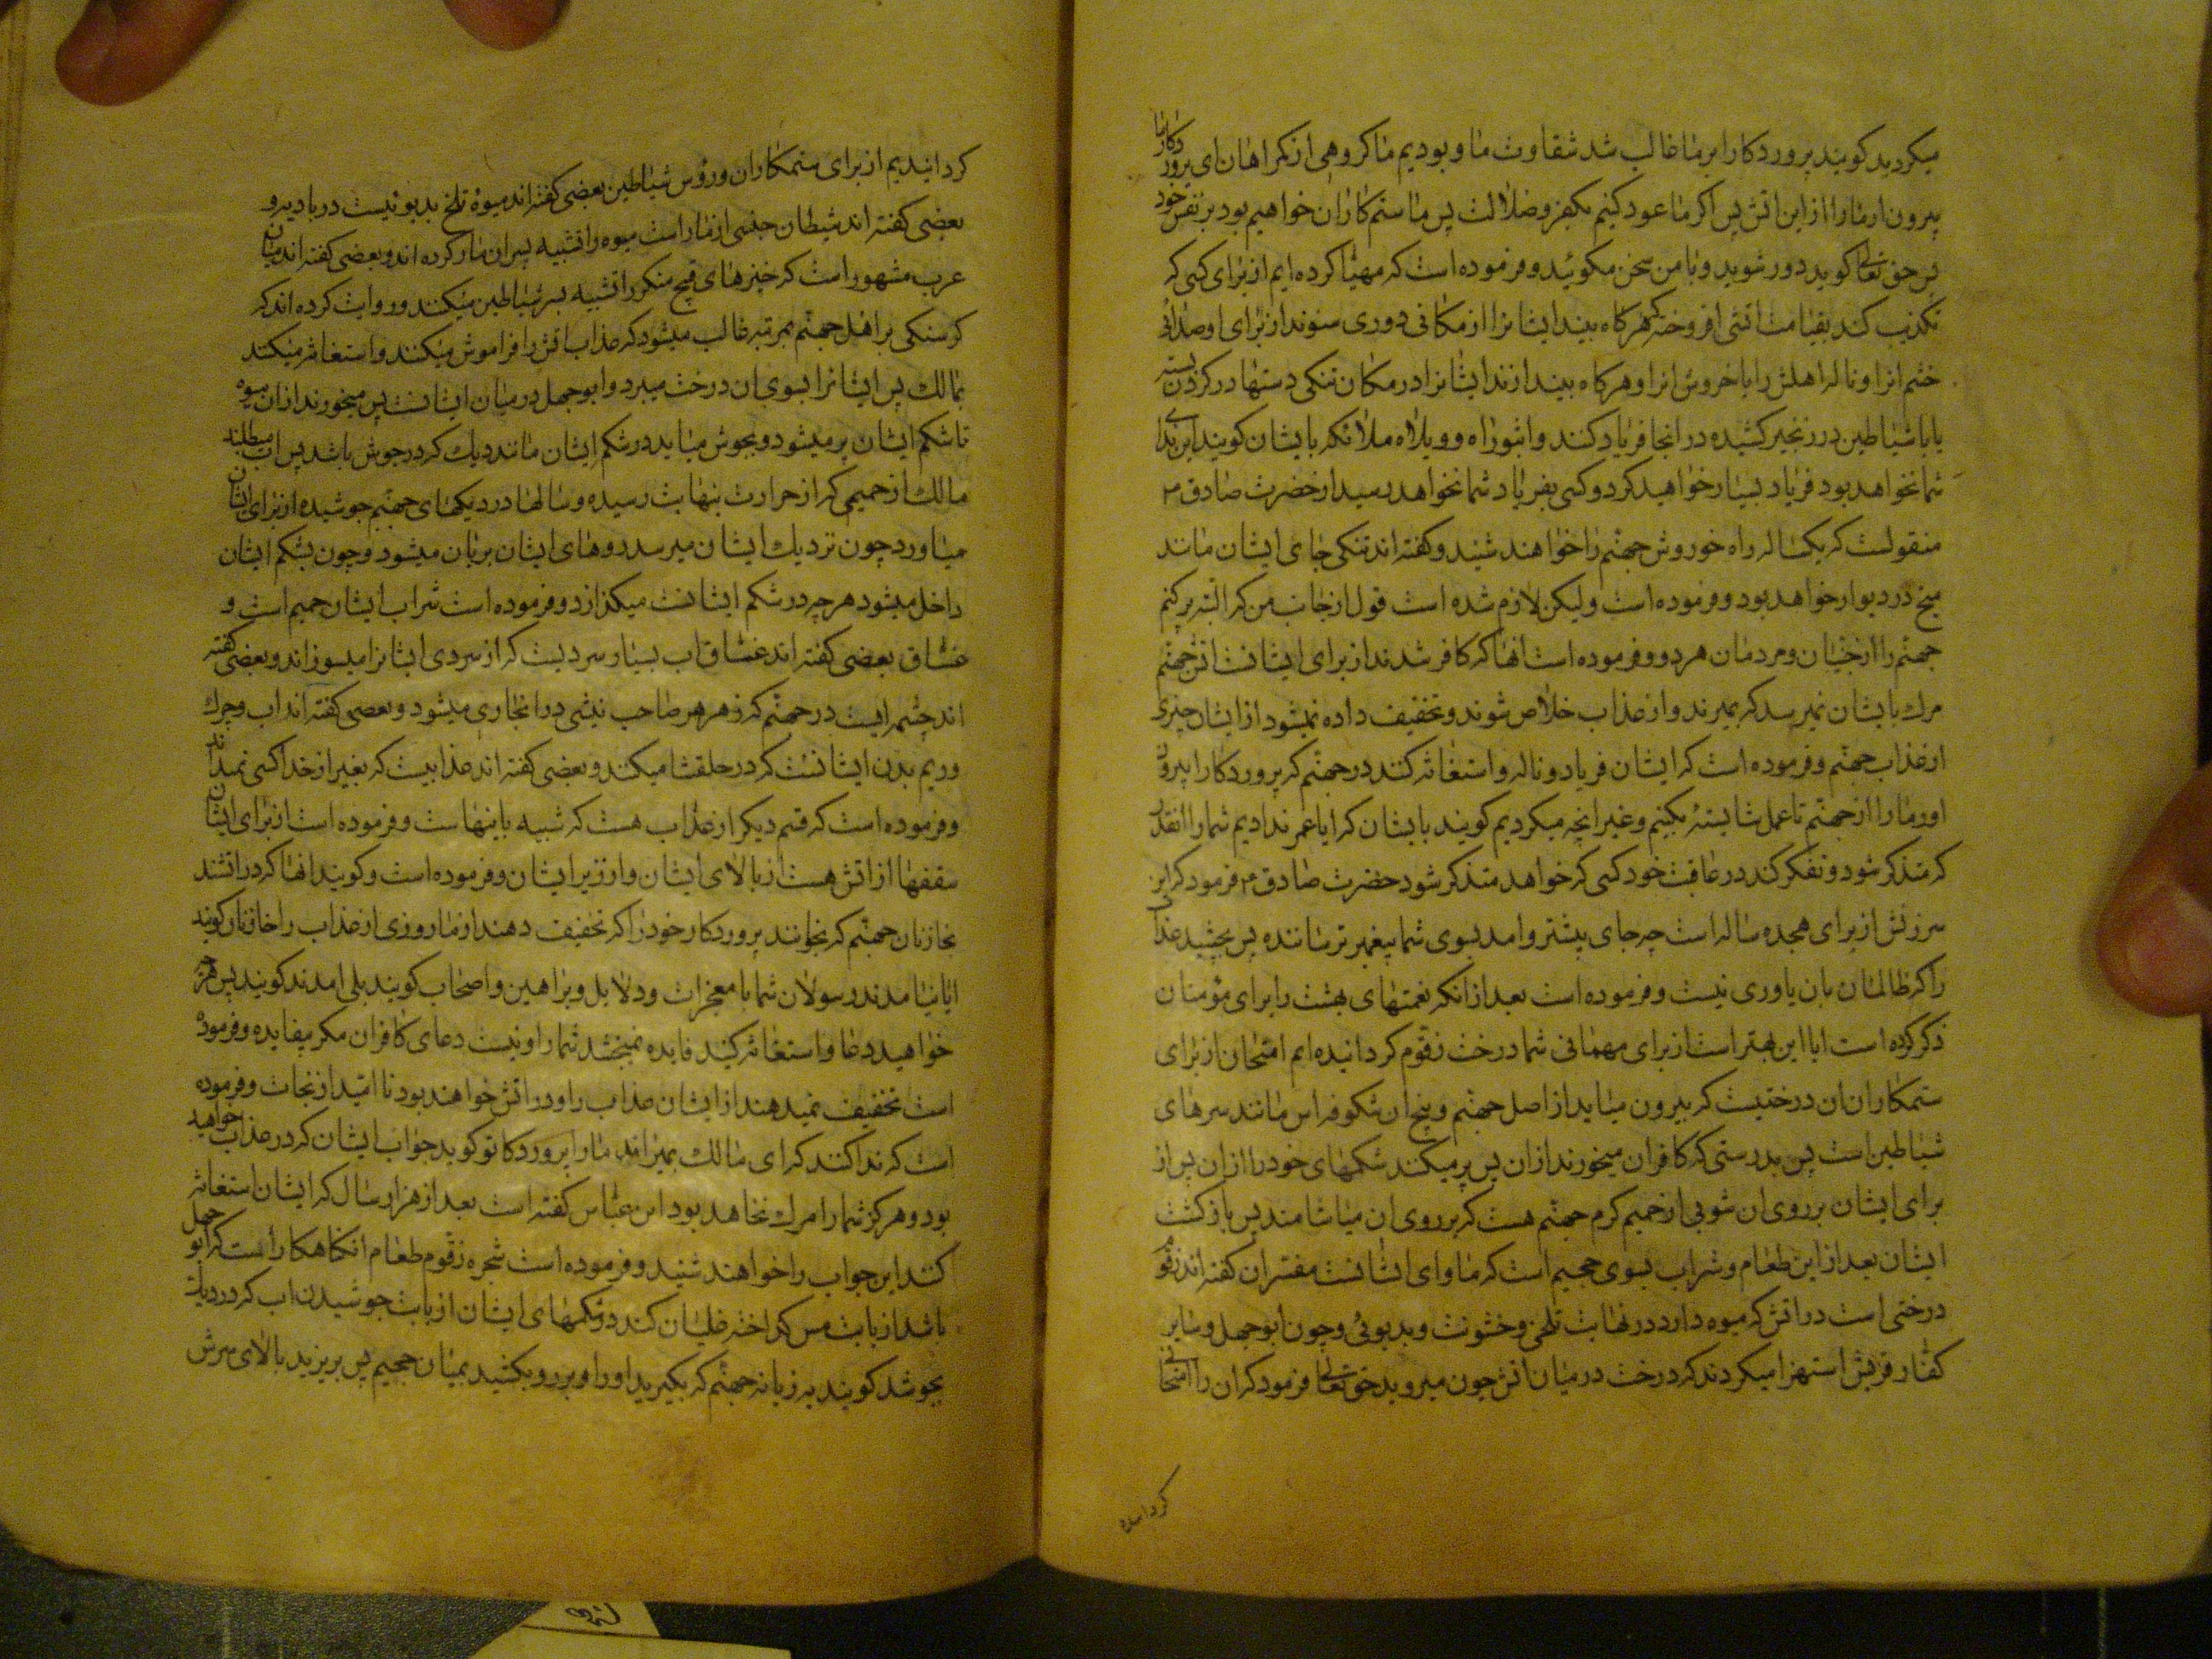 میکردید کویند پروردکارا بر ما غالب شد شقاوت ما و بودیم ما کروهی از کمراهان ای پروردکار ما
بیرون ار ما را از این اتش پس اکر ما عود کنیم بکفر و ضلالت پس ما ستم کاران خواهیم بود بر نفس خود
پس حق تعالی کوید دور شوید و با من سخن مکوئید و فرموده است که مهیا کرده ایم از برای کسی که
تکذیب کند بقیامت اتشی افروخته که هرکاه بیند ایشانرا از مکانی دوری شنوند از برای او صدای
خشم انرا و ناله اهلش را با خروش انرا و هرکاه بیندازند ایشانرا در مکان تنکی دستها در کردن بسته
یا با شیاطین در زنجیر کشیده در انجا فریاد کنند واثبوراه و ویلاه ملائکه بایشان کویند این ندای
شما نخواهد بود فریاد بسیار خواهید کرد و کسی بفریاد شما نخواهد رسید از حضرت صادق م
منقولست که یکساله راه خوروش جهنم را خواهند شنید و کفته اند تنکی جای ایشان مانند
میخ در دیوار خواهد بود و فرموده است ولیکن لازم شده است قول از جانب من که البته پر کنم
جهنم را از جنیان و مردمان هر دو و فرموده است انها که کافر شدند از برای ایشانست اتش جهنم
مرك بایشان نمیرسد که بمیرند و از عذاب خلاص شوند و تخفیف داده نمیشود از ایشان چیزی
از عذاب جهنم و فرموده است که ایشان فریاد و ناله و استغاثه کنند در جهنم که پروردکارا بیرون
اور ما را از جهنم تا عمل شایسته بکنیم و غیر انچه میکردیم کویند بایشان که ایا عمر ندادیم شما را انقدر
که متذکر شود و تفکر کند در عاقبت خود کسی که خواهد متذکر شود حضرت صادق م فرمود که این
سرزنش از برای هجده ساله است چه جای بیشتر و امد بسوی شما پیغمبر ترساننده پس بچشید عذاب
را که ظالمان بان یاوری نیست و فرموده است بعد از انکه نعمتهای بهشت را برای مؤمنان
ذکر کرده است ایا این بهتر است از برای مهمانی شما درخت زقوم کردانیده ایم امتحان از برای
ستمکاران ان درختیست که بیرون میاید از اصل جهنم و بیخ ان شکوفه اس مانند سرهای
شیاطین است پس بدرستی که کافران میخورند از ان پس پر میکند شکمهای خود را از ان پس از
برای ایشان بر روی ان شوبی از حمیم کرم جهنم هست که بر روی ان میاشامند پس باز کشت
ایشان بعد از این طعام و شراب بسوی جحیم است که ماوای ایشانست مفسران کفته اند زقوم
درختی است در اتش که میوه دارد در نهایت تلخی و خشونت و بدبوئی و چون ابوجهل و سایر
کفار قریش استهزا میکردند که درخت در میان اتش چون میروید حق تعالی فرمود که ان را امتحانی
کردانیده
کردانیدیم از برای ستمکاران و رؤس شیاطین بعضی کفته اند میوهٔ تلخ بدبوئیست در بادیه و
بعضی کفته اند شیطان جنسی از مار است میوه را تشبیه بسران مار کرده اند و بعضی کفته اند میان
عرب مشهور است که چیزهای قبیح منکر را تشبیه بسر شیاطین میکنند و روایت کرده اند که
کرسنکی بر اهل جهنم بمرتبه غالب میشود که عذاب اتش را فراموش میکنند و استغاثه میکنند
بمالك پس ایشانرا بسوی ان درخت میبرد و ابوجهل در میان ایشانست پس میخورند از ان میوه
تا شکم ایشان پر میشود و بجوش میاید در شکم ایشان مانند دیك که در جوش باشد پس اب میطلبند
مالك از حمیمی که از حرارت بنهایت رسیده و سالها در دیکهای جهنم جوشیده از برای ایشان
میاورد چون نزدیك ایشان میرسد روهای ایشان بریان میشود و چون بشکم ایشان
داخل میشود هر چه در شکم ایشانست میکدازد و فرموده است شراب ایشان حمیم است و
غساق بعضی کفته اند غساق اب بسیار سردیست که از سردی ایشانرا میسوزاند و بعضی کفته
اند چشمه ایست در جهنم که زهر هر صاحب نیشی در انجاری میشود و بعضی کفته اند اب و چرك
و ریم بدن ایشانست که در حلقشا میکنند و بعضی کفته اند عذابیست که بغیر از خدا کسی نمیداند
و فرموده است که قسم دیکر از عذاب هست که شبیه باینهاست و فرموده است از برای ایشان
سقفها از اتش هست از بالای ایشان و از زیر ایشان و فرموده است و کویند انها که در اتشند
بخازنان جهنم که بخوانند پروردکار خود را که تخفیف دهند از ما روزی از عذاب را خازنان کویند
ایا نیامدند رسولان شما با معجزات و دلایل و براهین و اصحاب کویند بلی امدند کویند پس هر چه
خواهید دعا و استغاثه کنید فایده نمیبخشد شما را و نیست دعای کافران مکر بیفایده و فرموده
است تخفیف نمیدهند از ایشان عذاب را و در اتش خواهند بود نا امید از نجات و فرموده
است که ندا کنند که ای مالك بمیراند ما را پروردکا تو کوید جواب ایشان که در عذاب خواهید
بود و هرکز شما را مرك نخاهد بود ابن عباس کفته است بعد از هزار سال که ایشان استغاثه
کنند این جواب را خواهند شنید و فرموده است شجره زقوم طعام انکاهکار است که ابو جهل
باشد از بابت مس کداخته غلیان کند در شکمهای ایشان از بابت جوشیدن اب که در دیك
بجوشد کویند به زبانه جهنم که بکیرید او را و بر رو بکشید بمیان جحیم پس بریزید بالای سرش